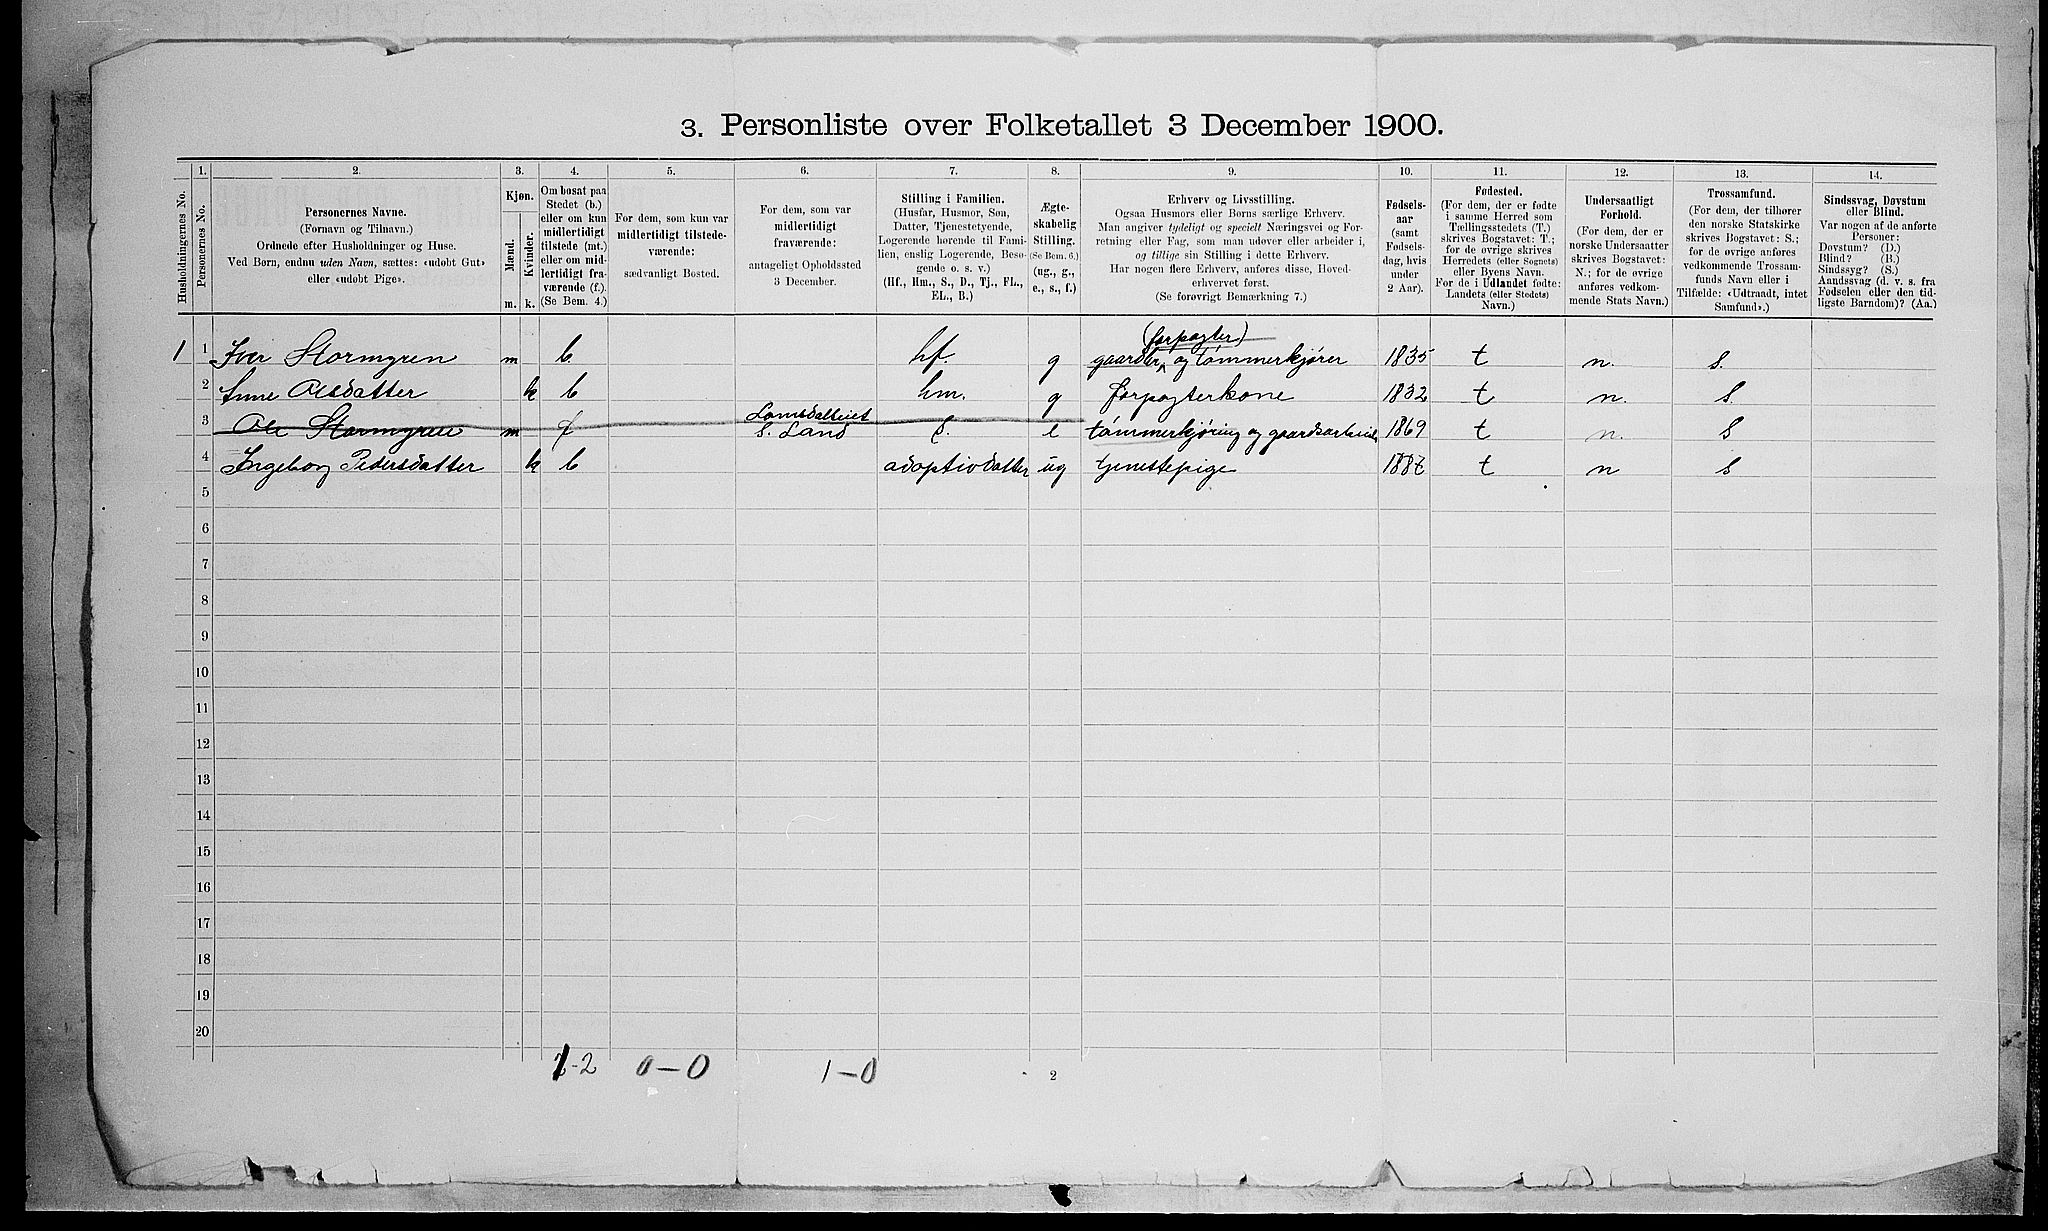 3. Personliste over Folketallet 3 December 1900.
1. 2. 3. 4. 5. 6. 7. 8. 9. 10. 11. 12. 13. 14.
Husholdningernes No.
Personernes No.
Personernes Navne.
(Fornavn og Tilnavn.)
Ordnede efter Husholdninger og Huse.
Ved Børn, endnu uden Navn, sættes: «udøbt Gut»
eller «udøbt Pige».
Kjøn.
Mænd.
Kvinder.
m. k.
Om bosat paa
Stedet (b.)
eller om kun
midlertidigt
tilstede (mt.)
eller om mid-
lertidigt fra-
værende (f.).
(Se Bem. 4.)
For dem, som kun var
midlertidigt tilstede-
værende:
sædvanligt Bosted.
For dem, som var
midlertidigt
fraværende:
antageligt Opholdssted
3 December.
Stilling i Familien.
(Husfar, Husmor, Søn,
Datter, Tjenestetyende,
Logerende hørende til Fami-
lien, enslig Logerende, Besø-
gende o. s. v.)
(Hf., Hm., S., D., Tj., FL.,
EL., B.)
Ægte-
skabelig
Stilling.
(Se Bem. 6.)
(ug., g.,
e., s., f.)
Erhverv og Livsstilling.
Ogsaa Husmors eller Børns særlige Erhverv.
Man angiver tydeligt og specielt Næringsvei og For-
retning eller Fag, som man udøver eller arbeider i,
og tillige sin Stilling i dette Erhverv.
Har nogen flere Erhverv, anføres disse, Hoved-
erhvervet først.
(Se forøvrigt Bemærkning 7.)
Fødsels-
aar
(samt
Fødsels-
dag, hvis
under
2 Aar).
Fødested.
(For dem, der er fødte
i samme Herred som
Tællingsstedets (T.)
skrives Bogstavet: T.;
for de øvrige skrives
Herredets (eller Sognets)
eller Byens Navn.
For de i Udlandet fødte:
Landets (eller Stedets)
Navn.)
Undersaatligt
Forhold.
(For dem, der er
norske Undersaatter
skrives Bogstavet:
N.; for de øvrige
anføres vedkom-
mende Stats Navn.)
Trossamfund.
(For dem, der tilhører
den norske Statskirke
skrives Bogstavet: S.;
for de øvrige anføres
vedkommende Trossam-
funds Navn eller i
Tilfælde: «Udtraadt, intet
Samfund».)
Sindssvag, Døvstum
eller Blind.
Var nogen af de anførte
Personer:
Døvstum? (D.)
Blind? (B.)
Sindssyg? (S.)
Aandssvag (d. v. s. fra
Fødselen eller den tid-
ligste Barndom)? (Aa.)
(forpagter)
1 1 Iver Stormyren m b. hf. g gaardbr. og tømmerkjører 1835 t n. s.
2 Anne Olsdatter k b hm. g forpagterkone 1832 t n. s.
S. Land
3 Ole Stormyren m f s. e tømmerkjøring og gaardsarbeide 1869 t n. s
4 Ingeborg Pedersdatter k b adoptivdatter ug tjenestepige t n s
5
6
7
8
9
10
11
12
13
14
15
16
17
18
19
20
1-2 0-0 1-0
2